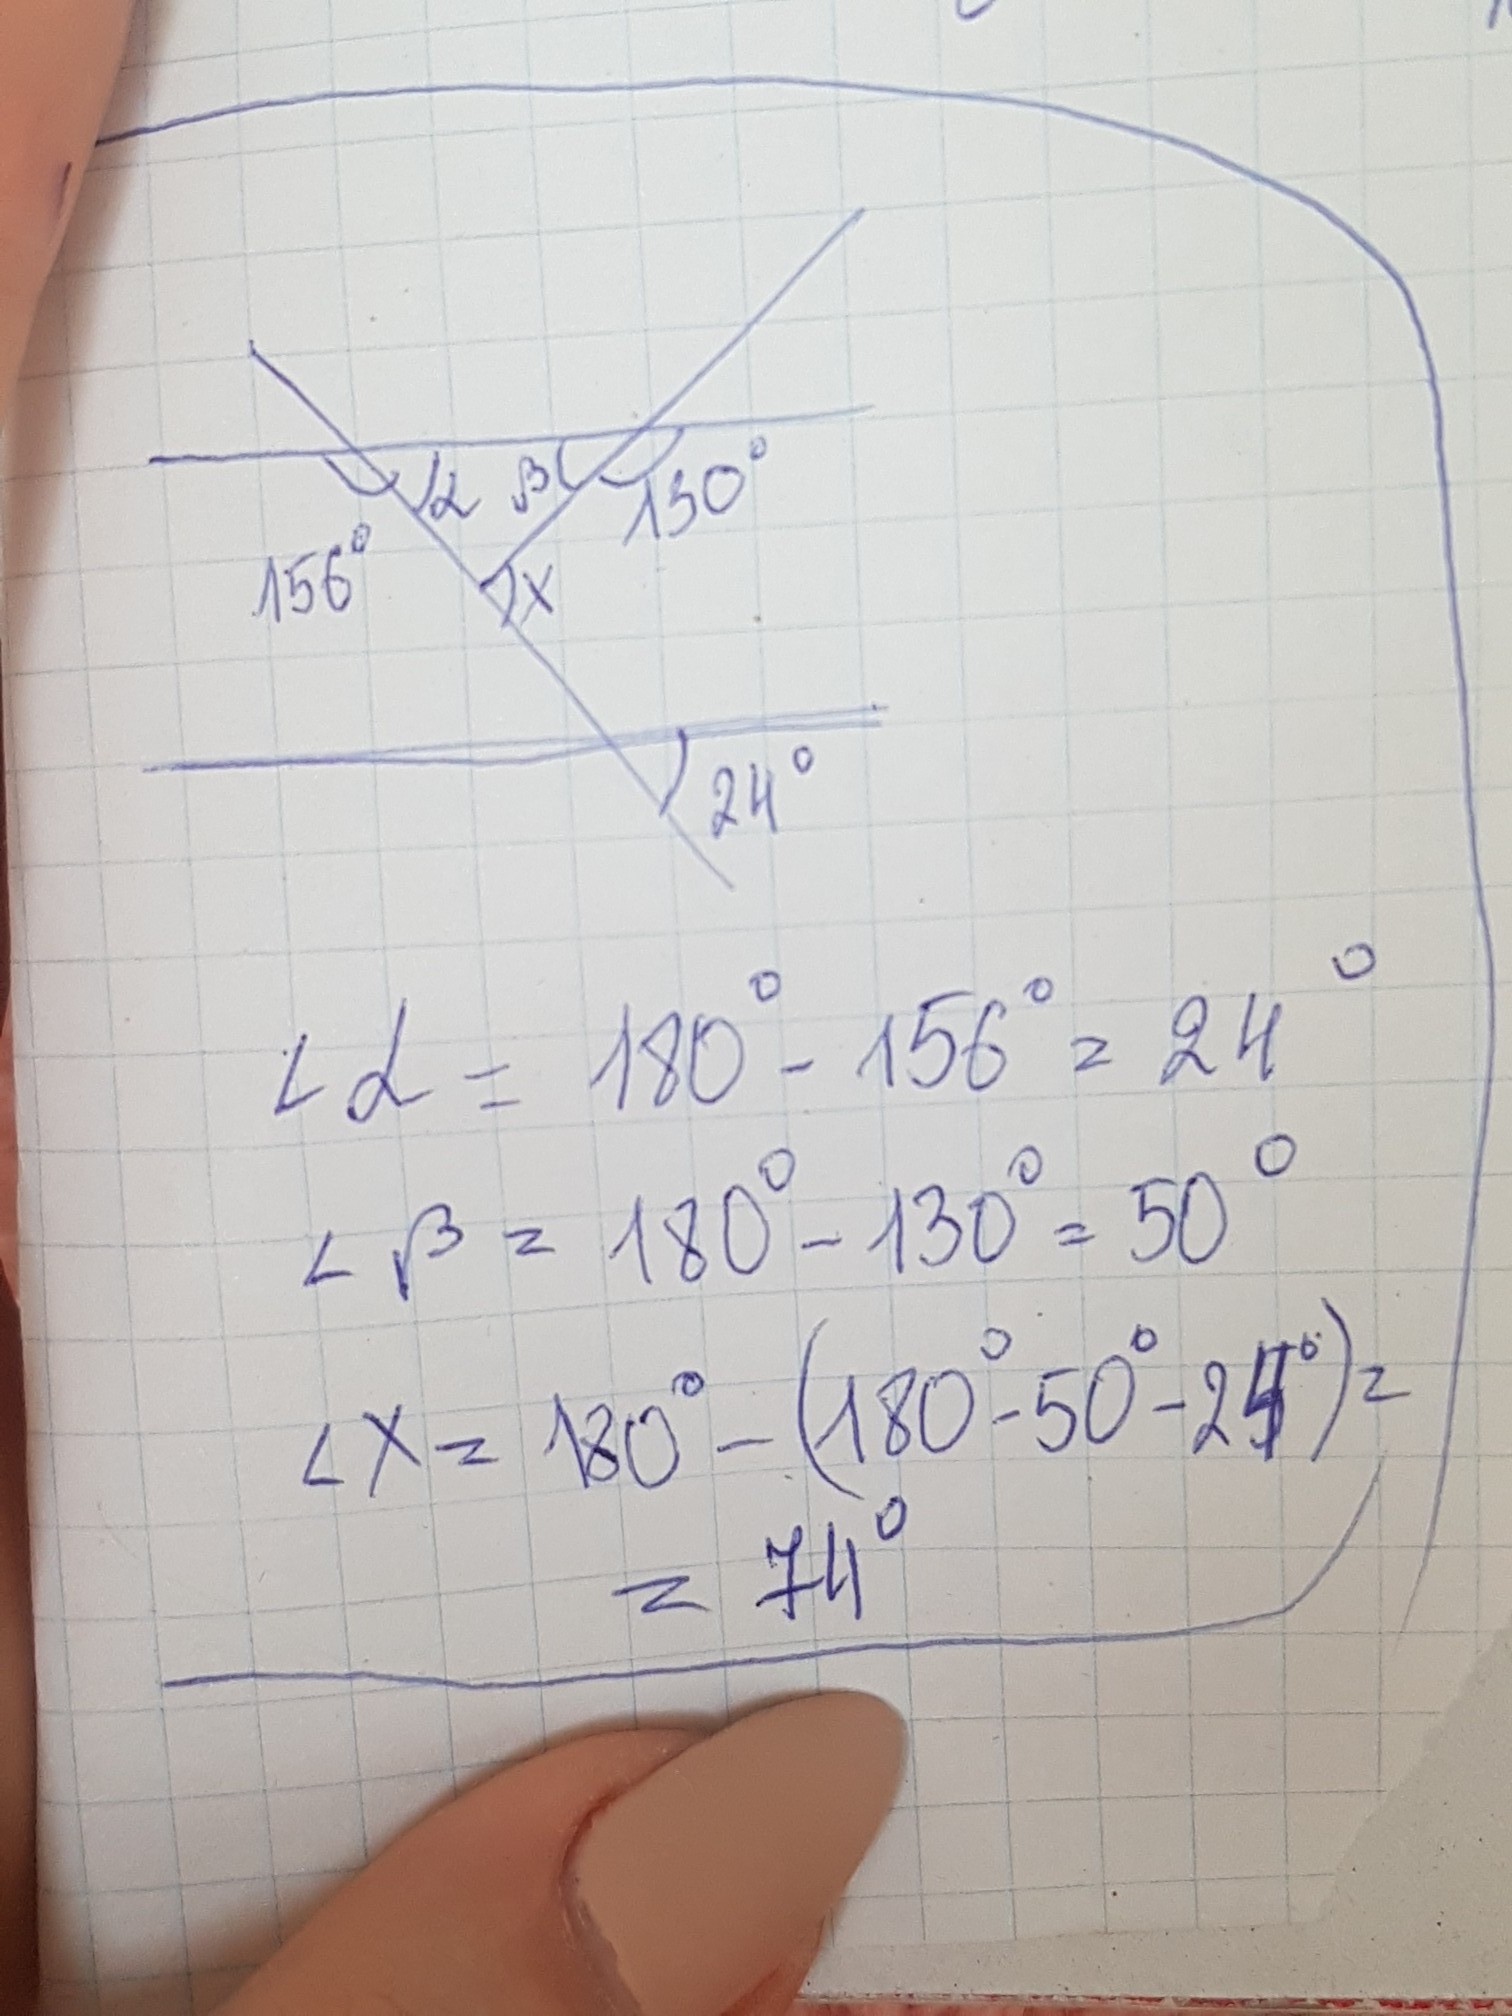 α β 130°
156° x
24°
∠α = 180° - 156° = 24°
∠β = 180° - 130° = 50°
∠x = 180° - (180° - 50° - 24°) =
= 74°